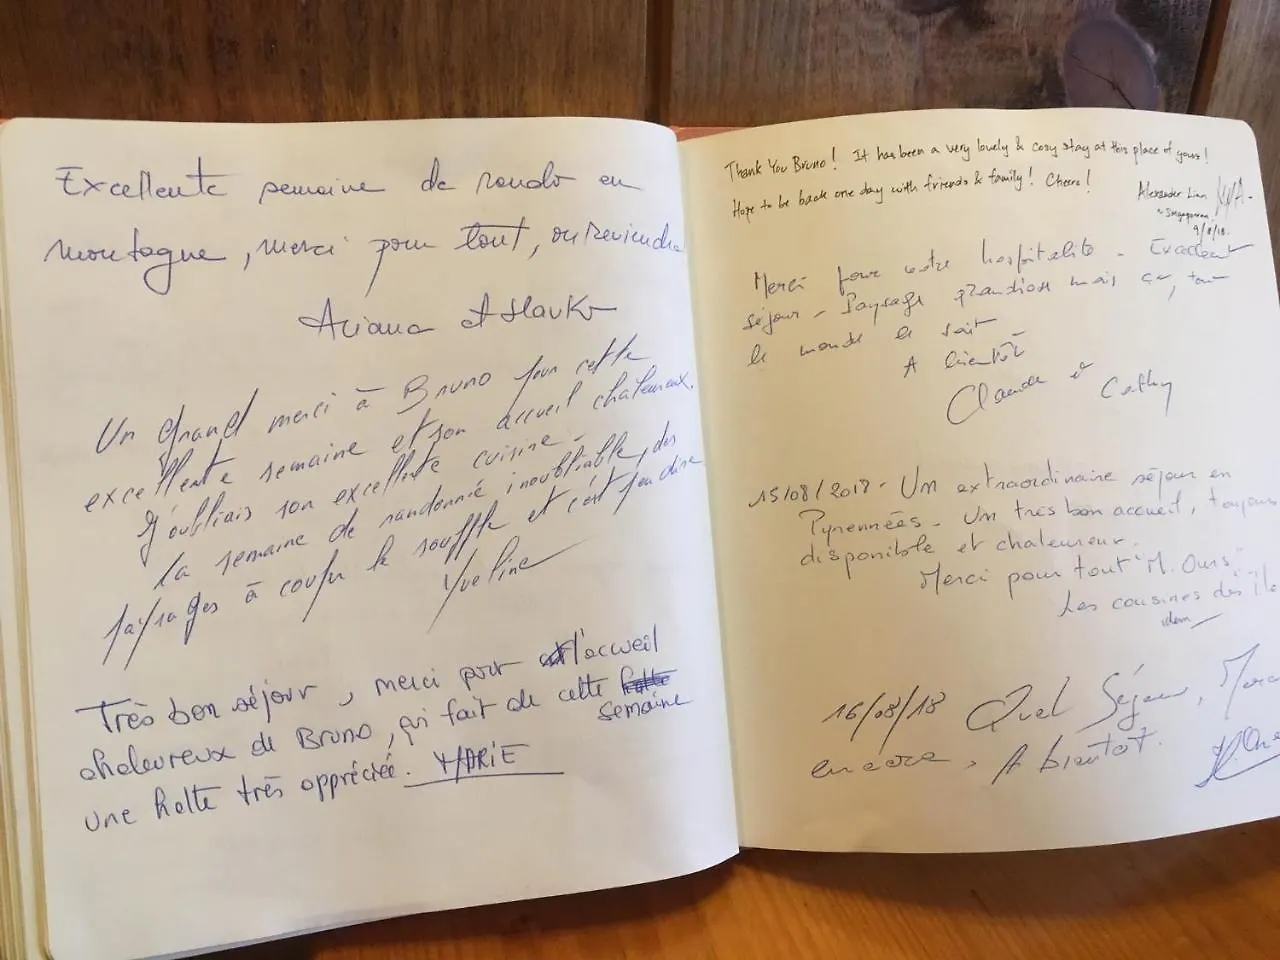 Excellente semaine de rando en
montagne, merci pour tout, on reviendra
Ariana et
Un grand merci à Bruno pour cette
excellente semaine et son accueil chaleureux.
J'oubliais son excellente cuisine -
la semaine de randonnié inoubliable, des
paysages à couper le souffle et c'est peu dire.
Yveline
Très bon séjour, merci pour l'accueil
chaleureux de Bruno, qui fait de cette
semaine
une halte très appréciée. MARIE
Thank You Bruno! It has been a very lovely & cosy stay at this place of yours!
Hope to be back one day with friends & family! Cheers!
Alexander Lian
~ Singaporean
9/8/18.
Merci pour votre hospitalité - Excellent
séjour - Paysage grandiose mais ça, tout
le monde le sait
A bientôt
Claude et Cathy
15/08/2018 - Un extraordinaire séjour en
Pyrennées - Un très bon accueil, toujours
disponible et chaleureux.
Merci pour tout "M. Ours".
Les cousines des
16/08/18 Quel Séjour, Merci
encore, A bientôt.